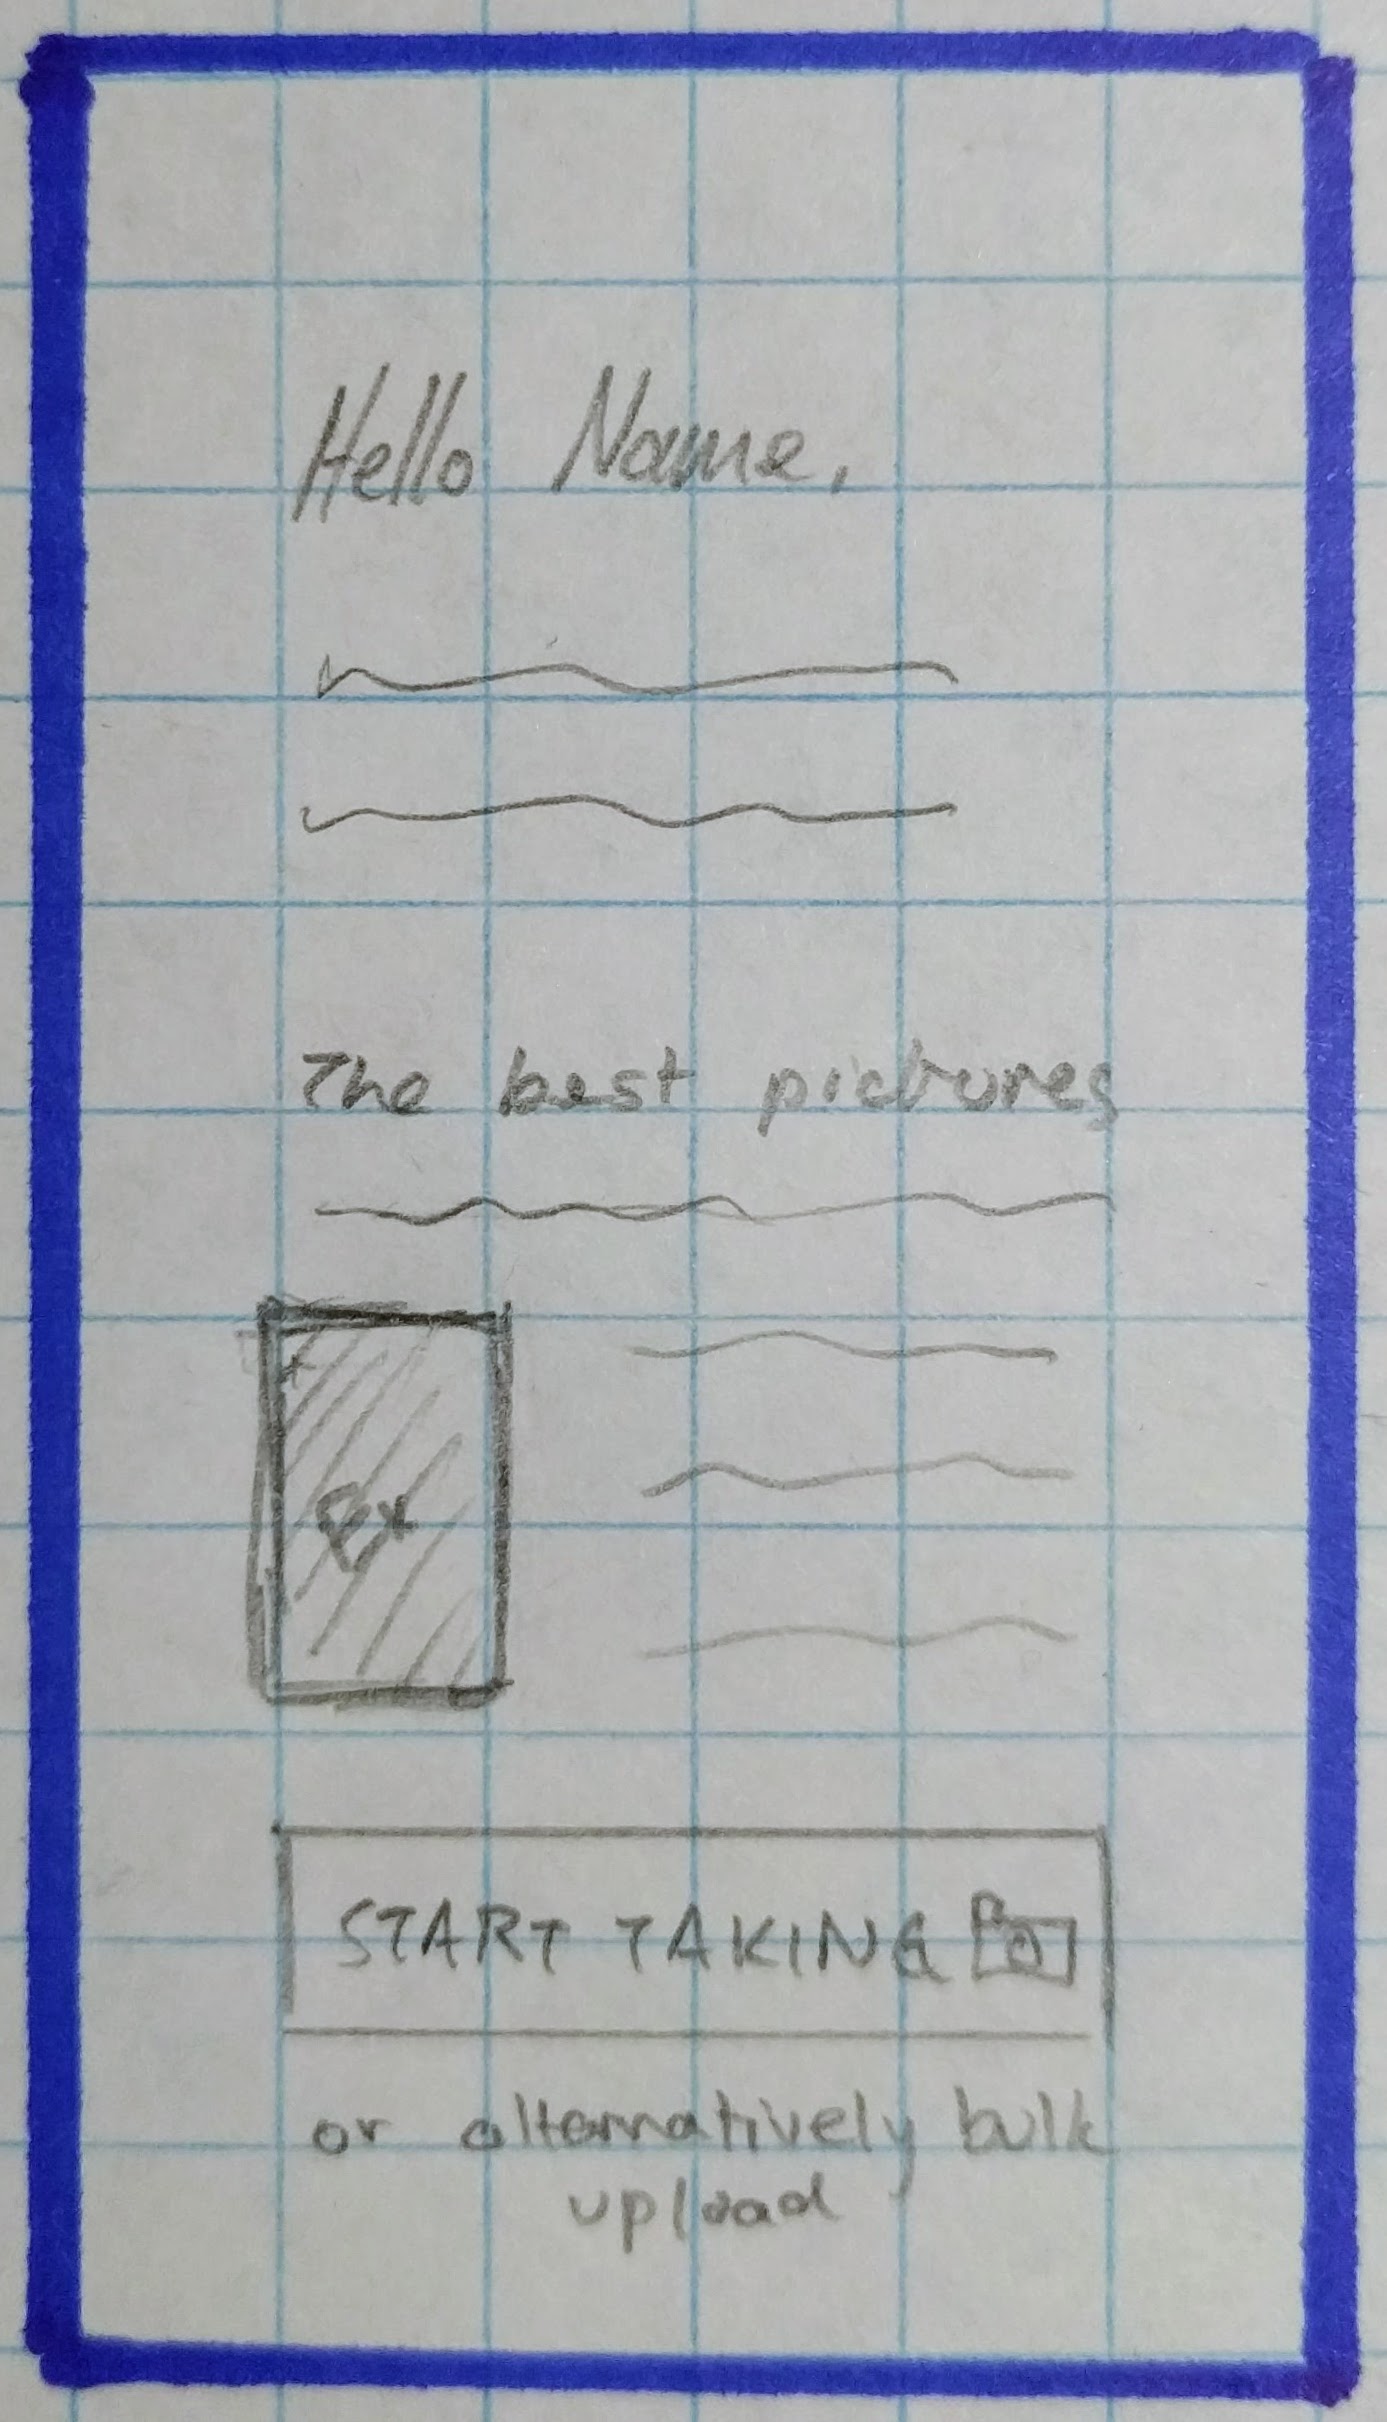 Hello Name,
The best pictures
Ex
START TAKING
or alternatively bulk
upload